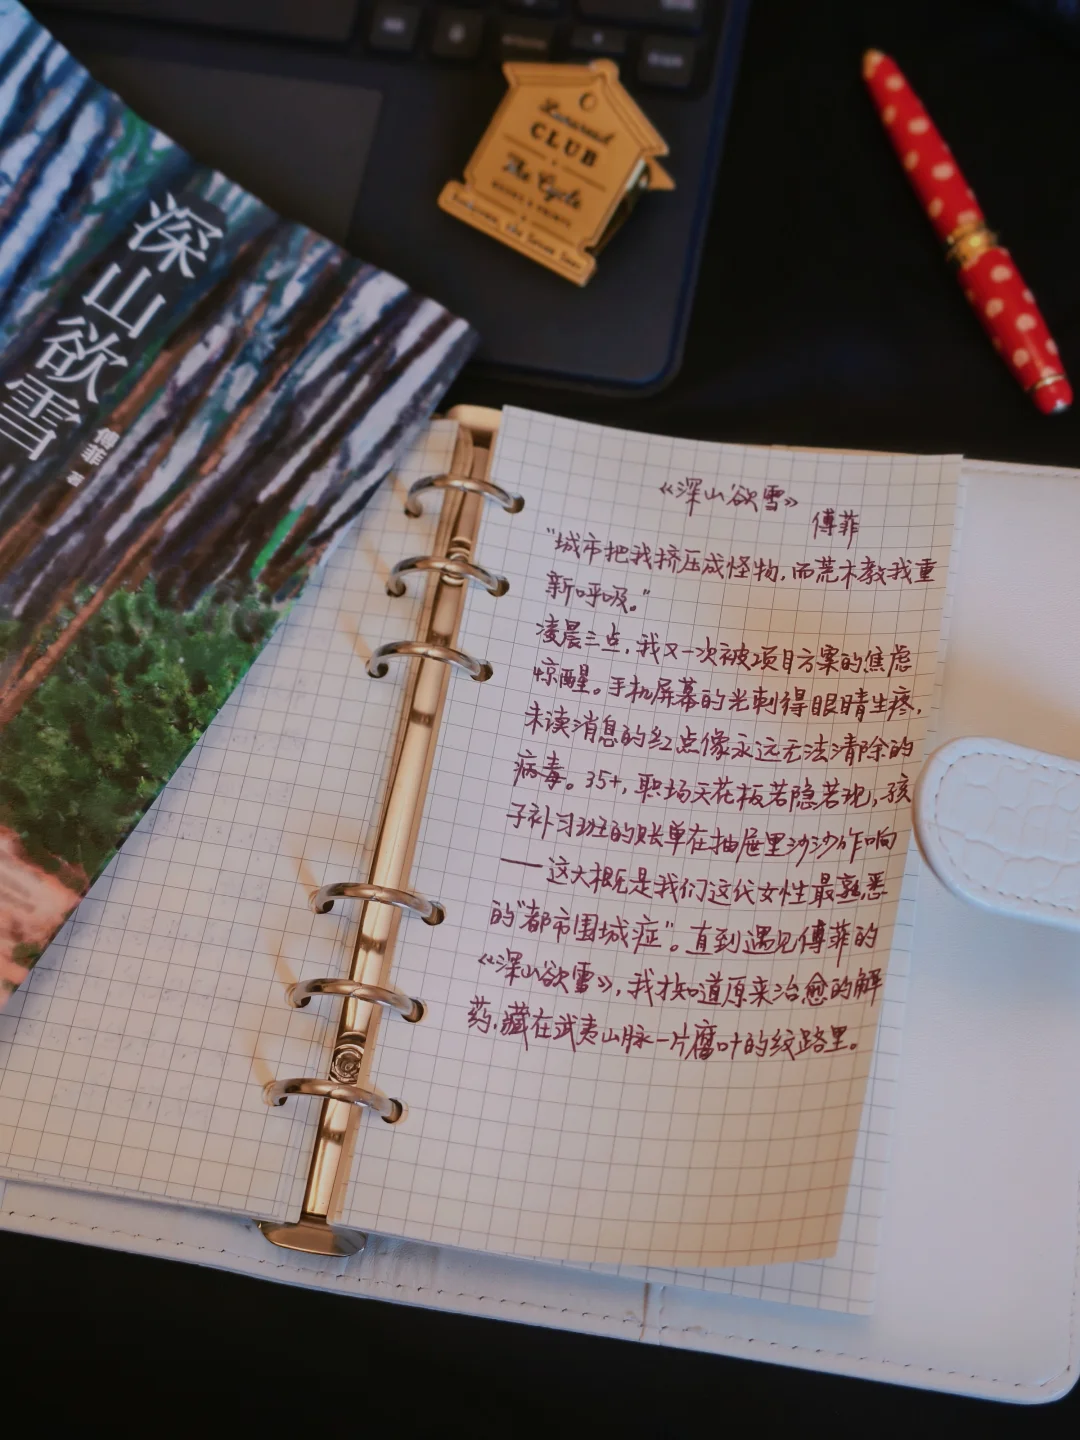 深山欲雪
傅菲 著
CLUB
The Cycle
《深山欲雪》
傅菲
"城市把我挤压成怪物，而荒木教我重
新呼吸。"
凌晨三点，我又一次被项目方案的焦虑
惊醒。手机屏幕的光刺得眼睛生疼，
未读消息的红点像永远无法清除的
病毒。35+，职场天花板若隐若现，孩
子补习班的账单在抽屉里沙沙作响
——这大概是我们这代女性最熟悉
的"都市围城症"。直到遇见傅菲的
《深山欲雪》，我才知道原来治愈的解
药，藏在武夷山脉一片腐叶的纹路里。